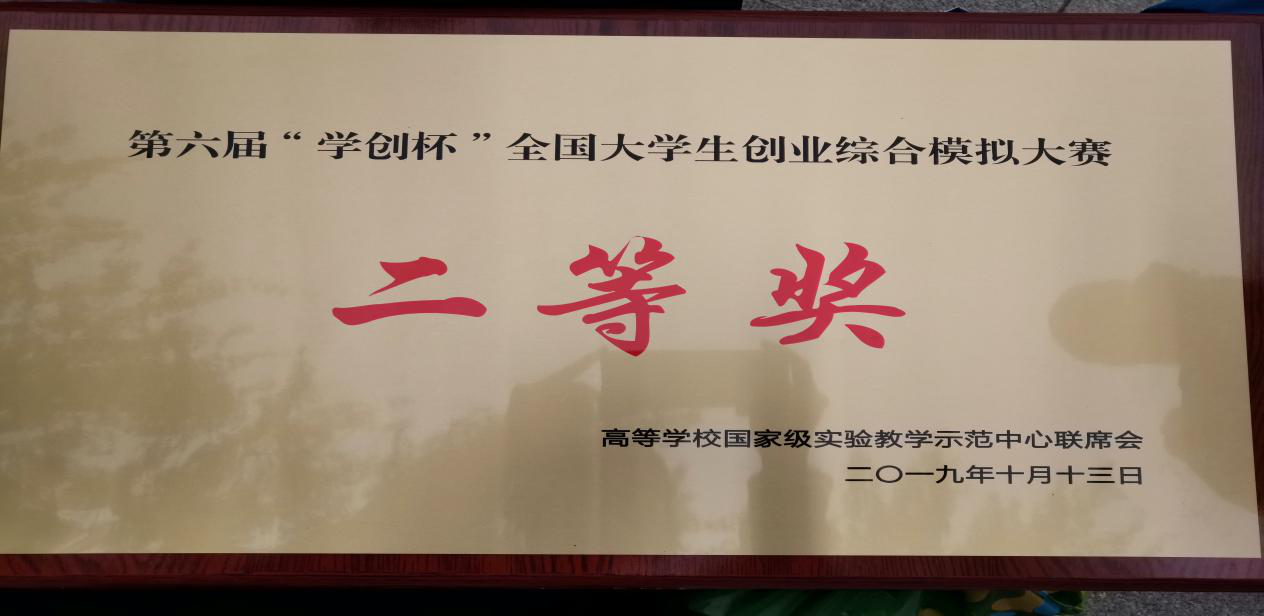 第六届“学创杯”全国大学生创业综合模拟大赛
二等奖
高等学校国家级实验教学示范中心联席会
二〇一九年十月十三日